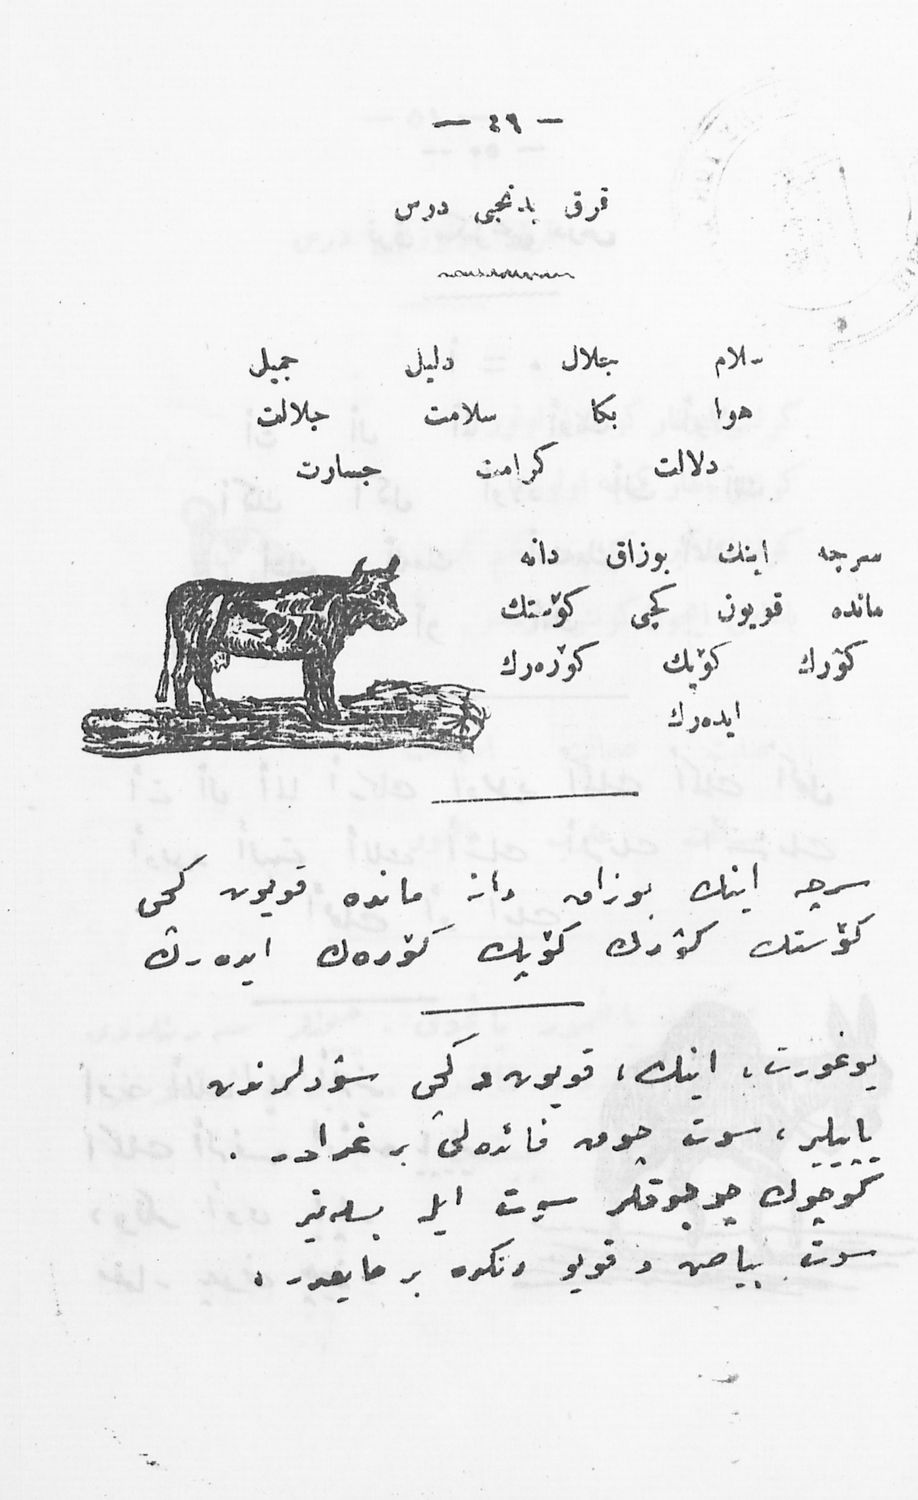 — ٤٩ —
قرق يدنجى درس
سلام جلال دليل جميل
هوا بكا سلامت جلالت
دلالت كرامت جسارت
سرچه اينك بوزاق دانه
مانده قويون كچى كۆستك
كۆرك كۆپك كۆره‌رك
ايده‌رك
سرچه اينك بوزاق دانه مانده قويون كچى
كۆستك كۆرك كۆپك كۆره‌رك ايده‌رك
يوغورت، اينك، قويون و كچى سۆدلرندن
ياپيلير، سوت چوق فائده‌لى بر غدادر .
كوچوك چوجوقلر سوت ايله بسله‌نير
سوت بياض و قويو رنكده بر مايعدر .